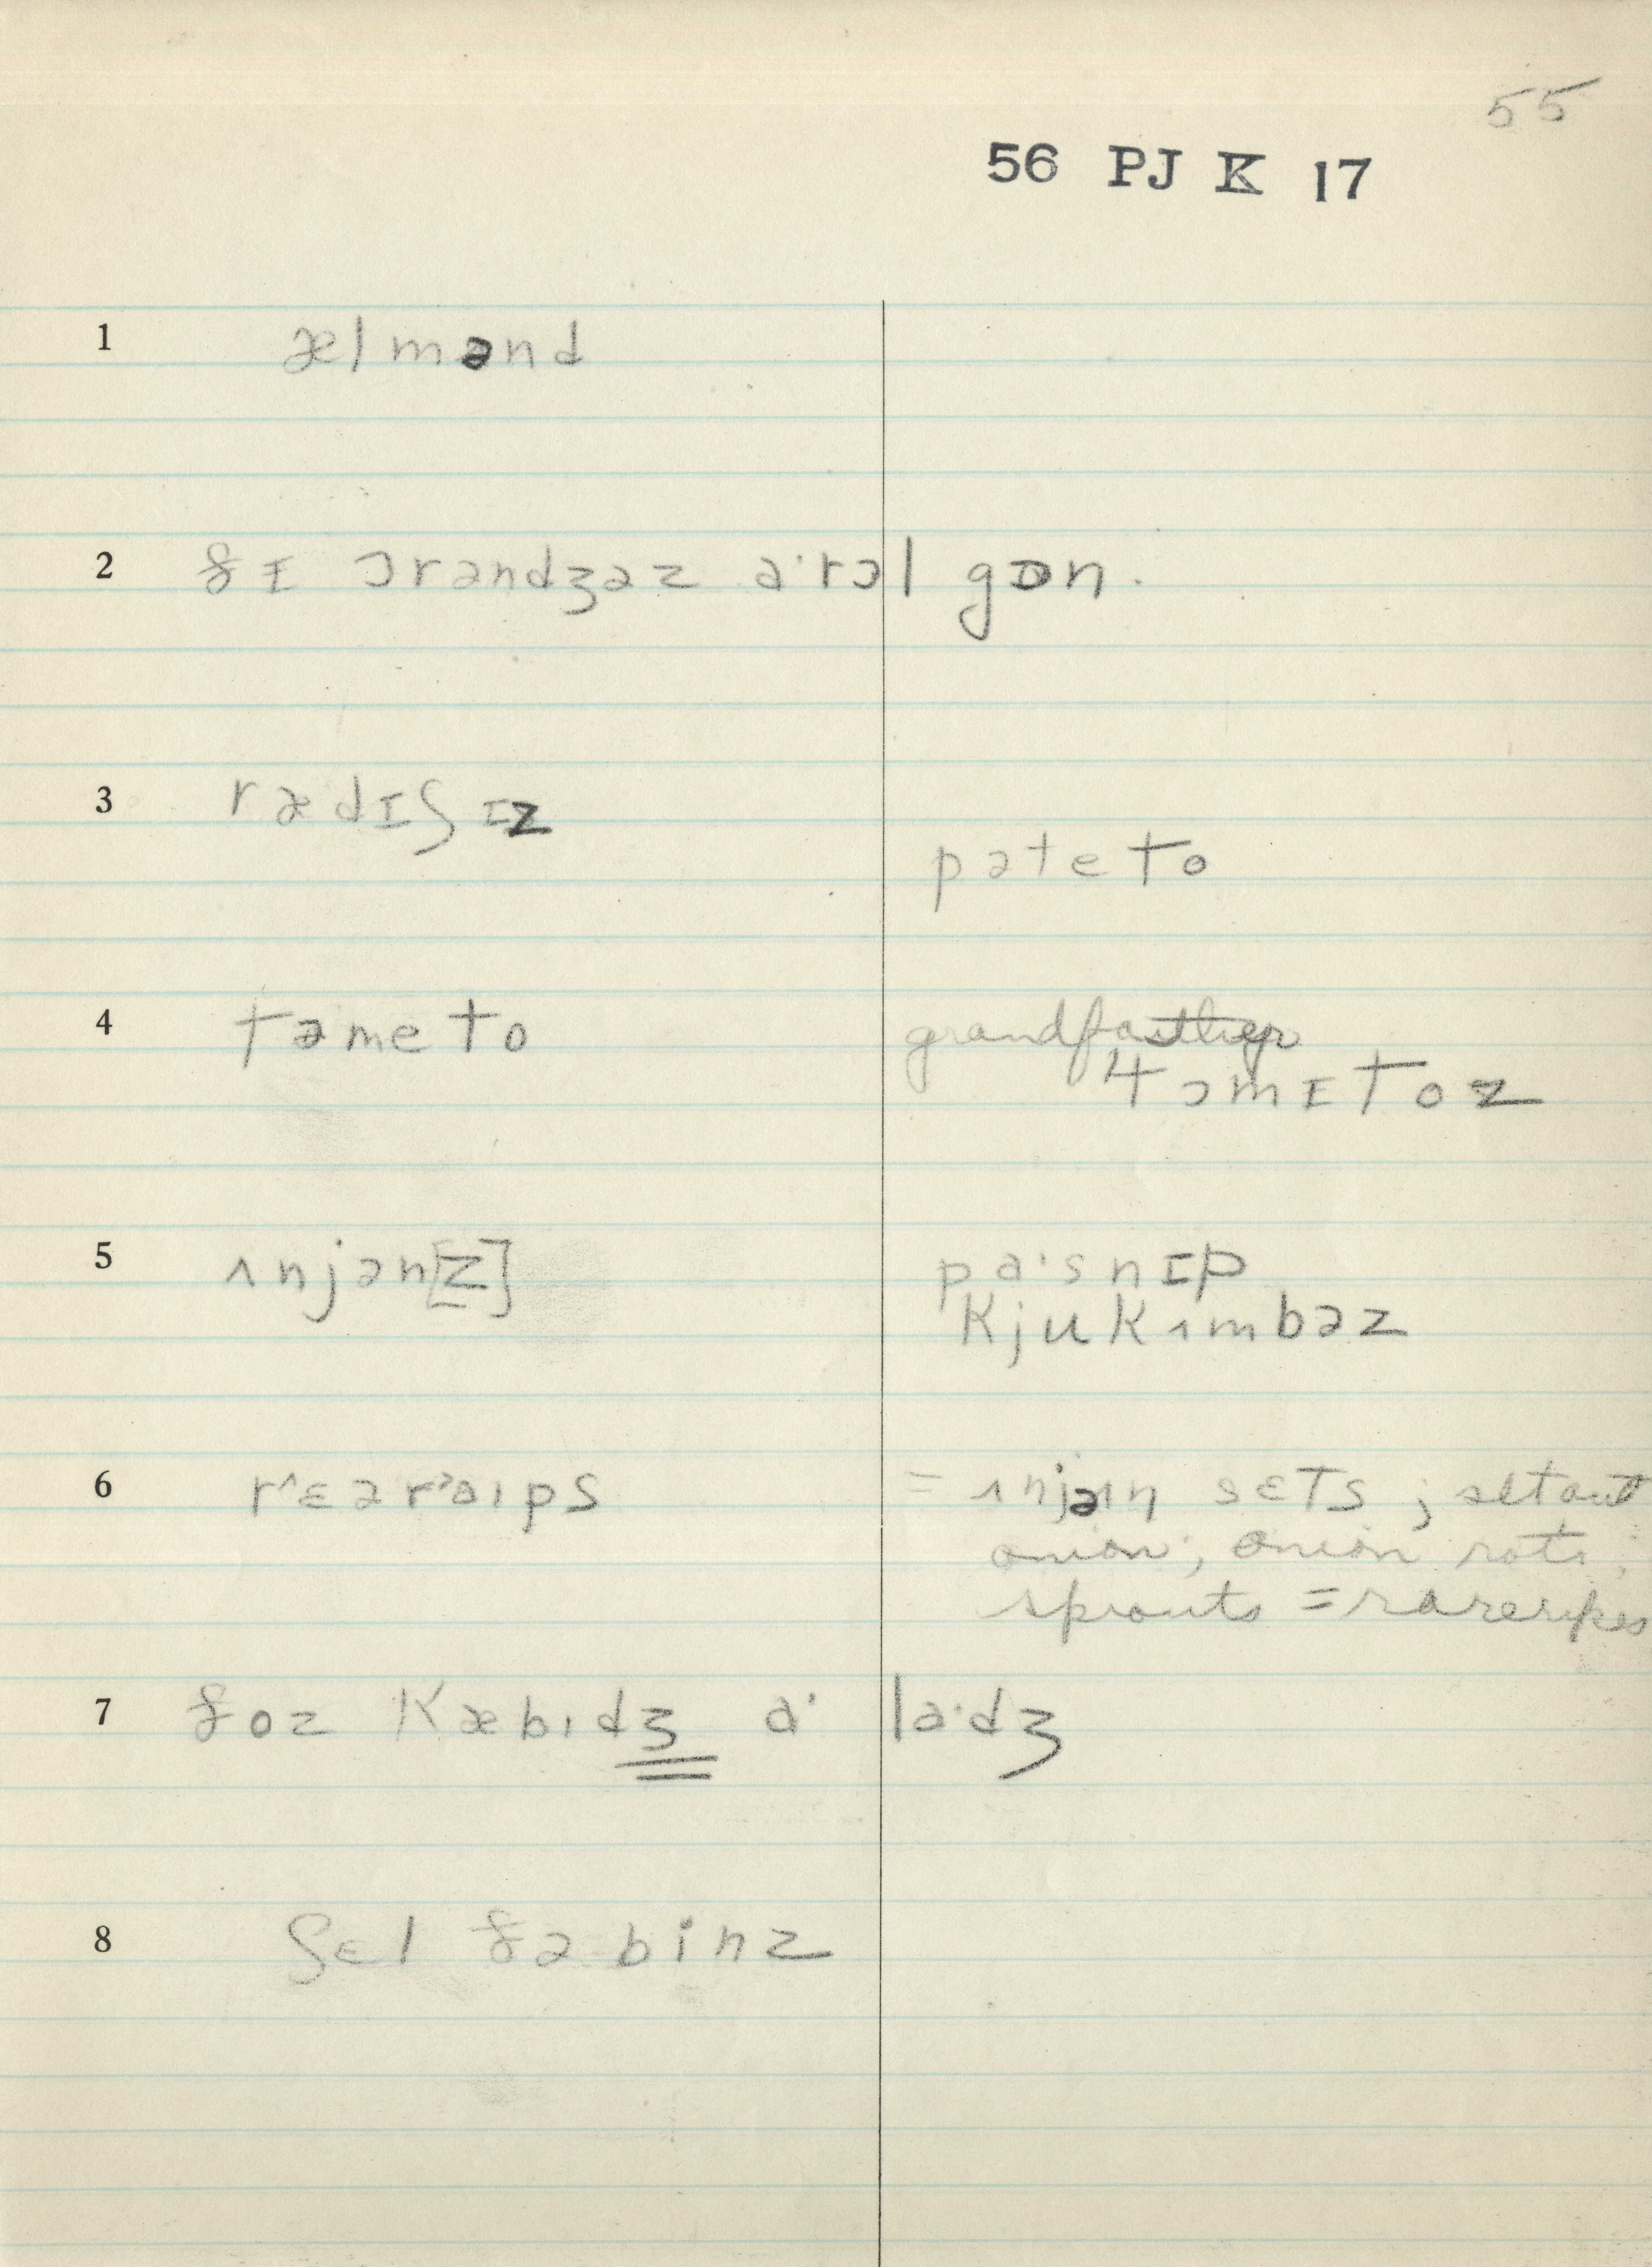 55
56 PJ K 17
1 ælmənd
2 ðɪ ɔrəndʒəz a·rɔl gɒn.
3 rædɪʃɪz
pəteto
4 təmeto
grandfather
təmɪtoz
5 ʌnjən[z]
pa·snɪp
kjukʌmbəz
6 rˆɛərˀaɪps = ʌnjən sɛts ; set out
onion ; onion rots ;
sprouts = rareripes
7 ðoz kæbɪdʒ a· la·dʒ
8 ʃɛl ðə binz